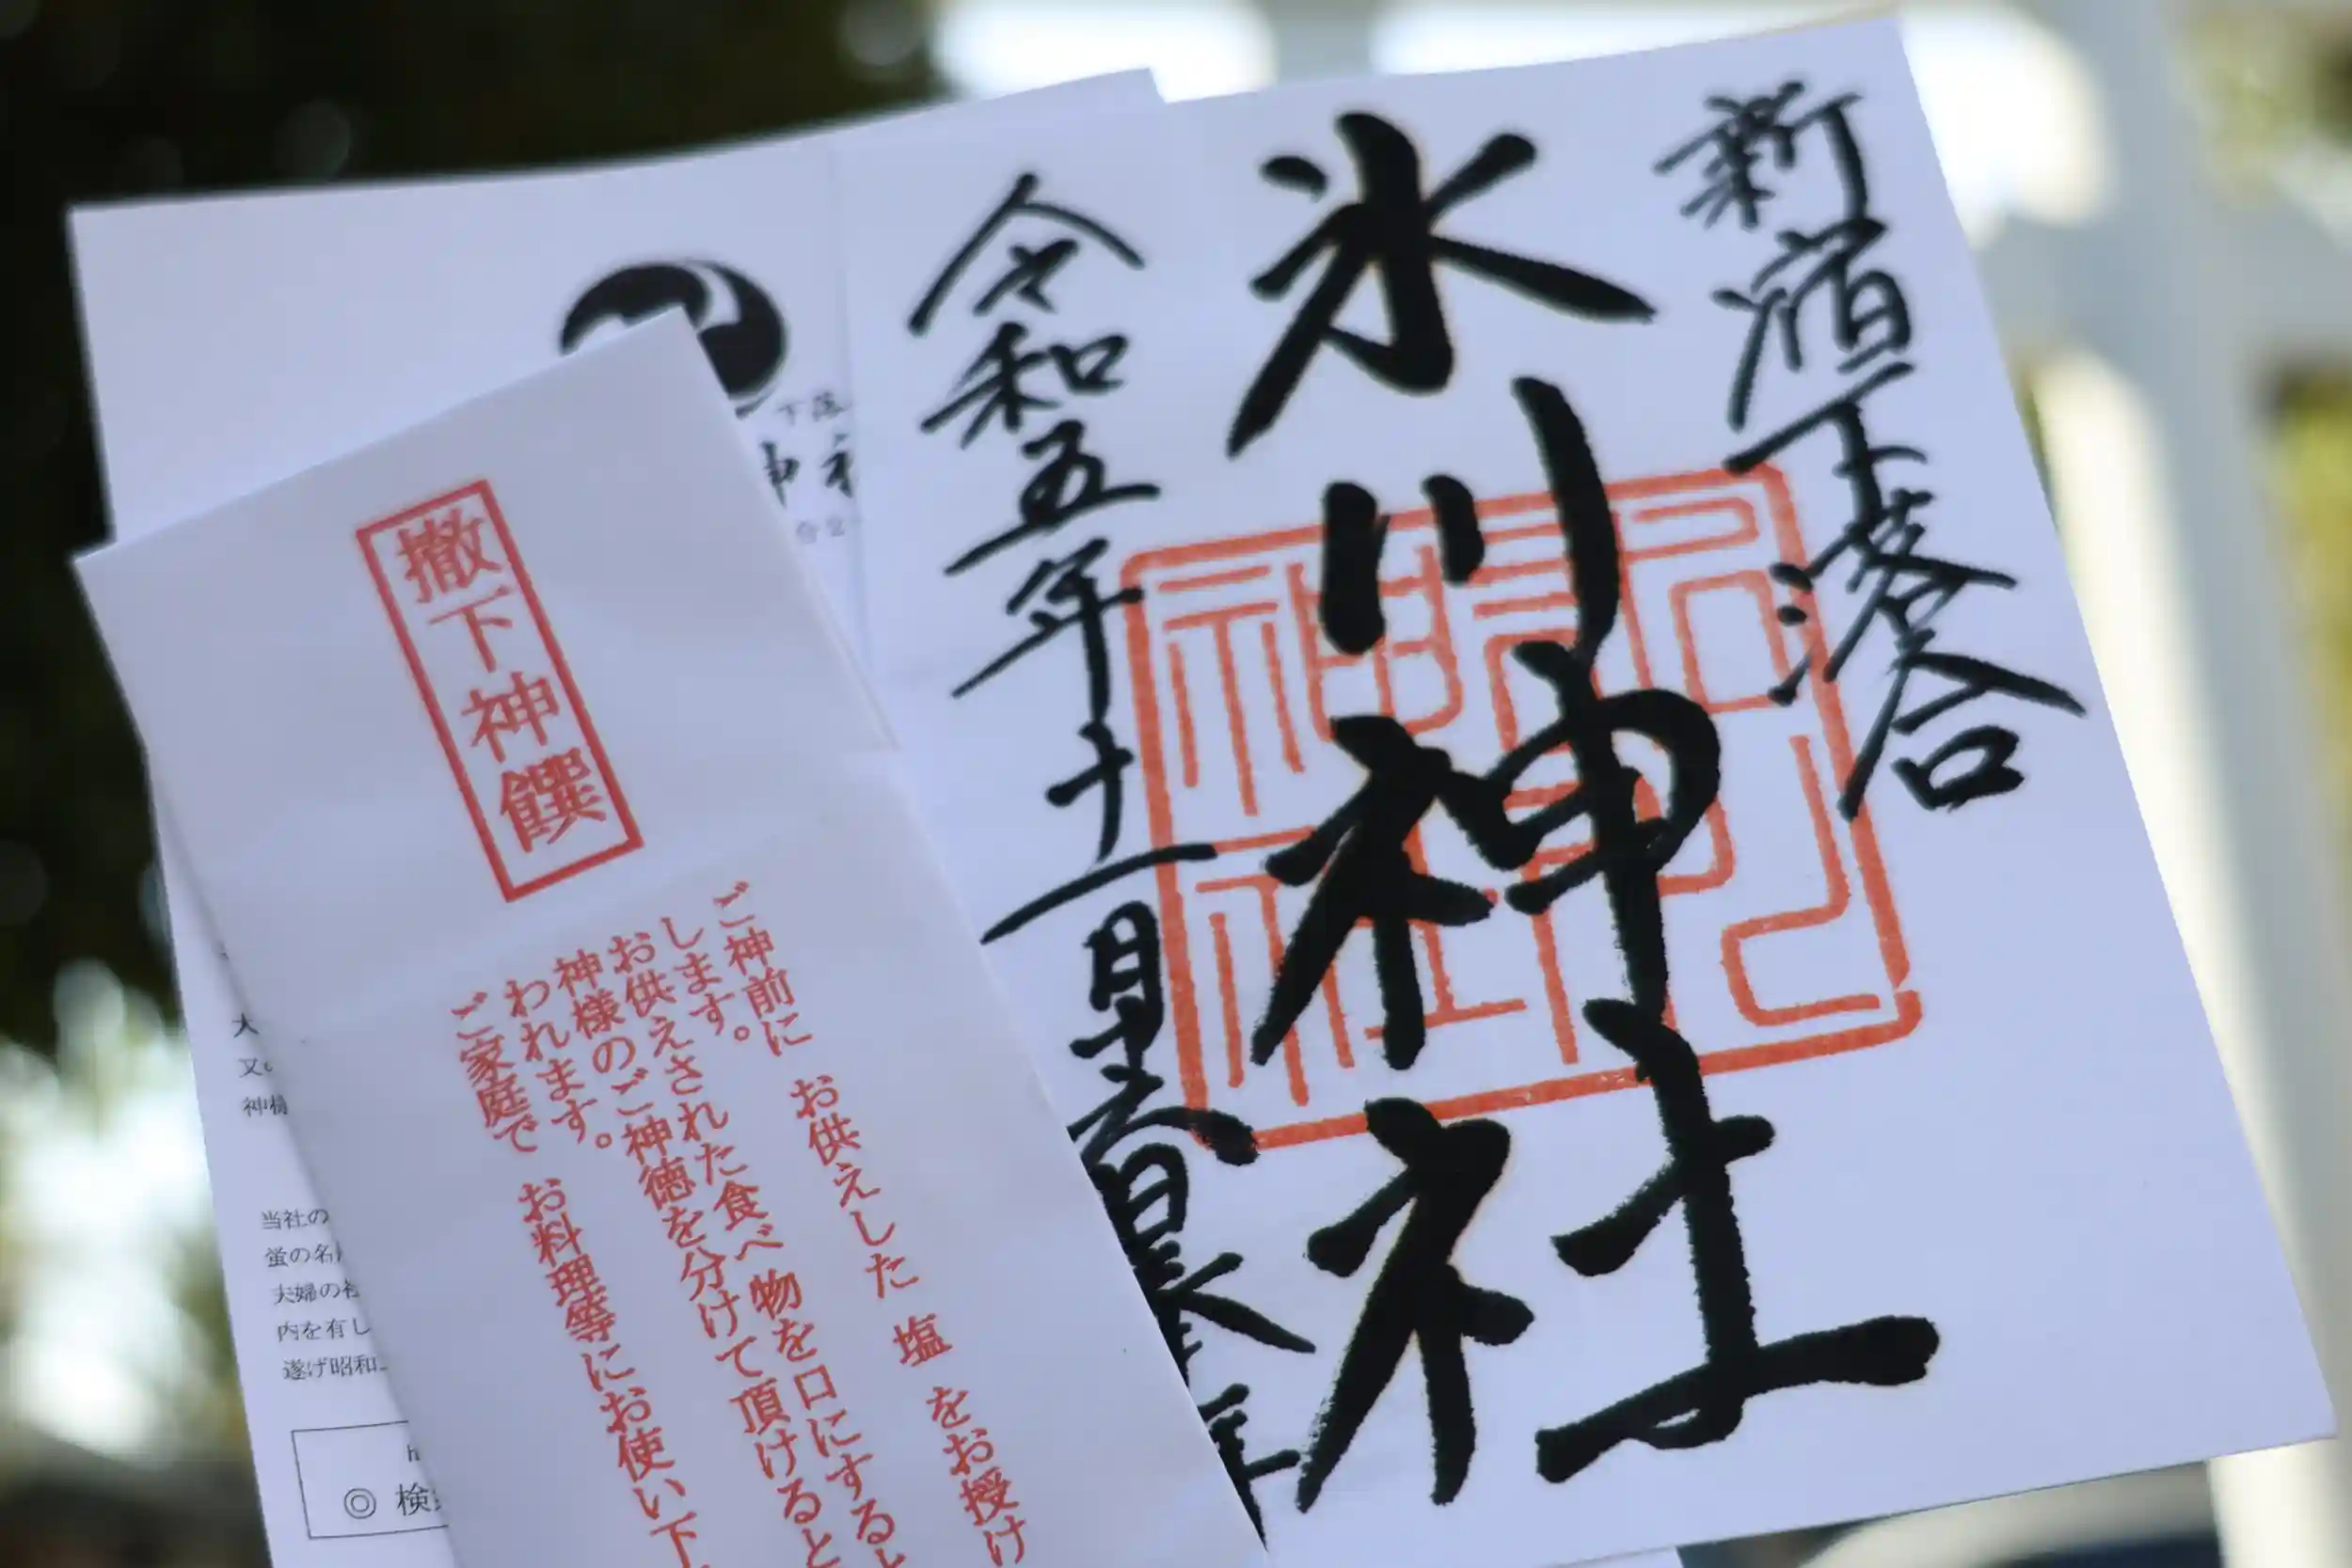 新宿下落合
氷川神社
令和五年十一月六日奉拝
撤下神饌
ご神前に お供えした 塩 をお授け
します。
お供えされた食べ物を口にすると
神様のご神徳を分けて頂けると
われます。
ご家庭で お料理等にお使い下
下落
神
大
又
神様
当社の
蛍の名
夫婦の
内を有し
遂げ昭和
◎ 検